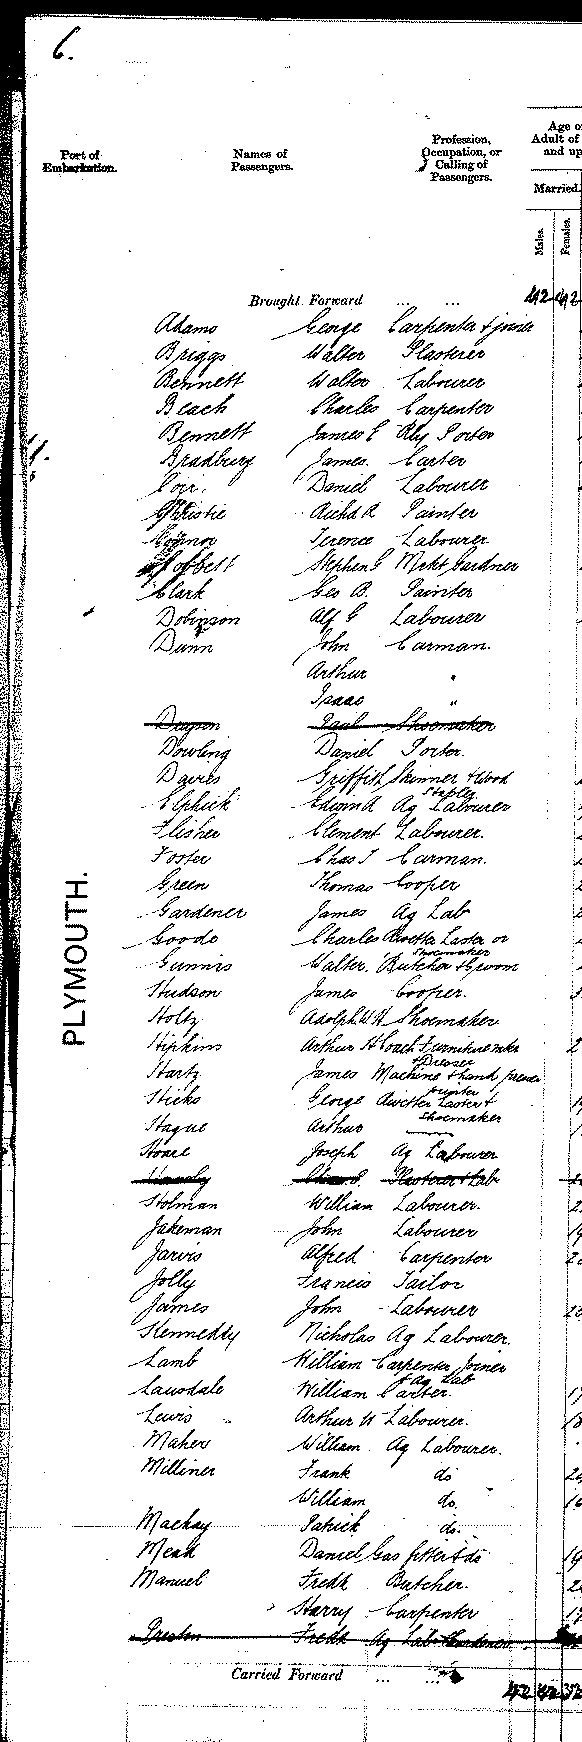 6.
Port of Embarkation.
Names of Passengers.
Profession, Occupation, or Calling of Passengers.
Age o
Adult of
and up
Married.
Males.
Females.
Brought Forward ... ... 42 42
Adams George Carpenter & joiner
Briggs Walter Plasterer
Bennett Walter Labourer
Beach Charles Carpenter
Bennett James E Rly Porter
Bradbury James. Carter
Daniel Labourer
Christie Richd A Painter
Connor Terence Labourer
Stephen G Mrkt Gardner
Clark Geo B. Painter
Dobinson Alf G Labourer
Dunn John Carman.
Arthur "
Isaac "
Paul Shoemaker
Dowling Daniel Porter.
Davies Griffith Skinner & Wood Stapler
Elphick Edward Ag Labourer
Flisher Clement Labourer.
Foster Chas T Carman.
Green Thomas Cooper
Gardener James Ag Lab
Goode Charles Rivetter Laster or Shoemaker
Gunnis Walter. Butcher & Groom
Hudson James Cooper.
Holtz Adolph W H Shoemaker
Hipkins Arthur H Coach Furniture mker & Dresser
Hartz James Machine & hand presser
Hicks George Rivetter Laster & Shoemaker
Hague Arthur
Hoare Joseph Ag Labourer
Plasterer & Lab
Holman William Labourer.
Jakeman John Labourer
Jarvis Alfred Carpenter
Jolly Francis Tailor
James John Labourer
Kennedy Nicholas Ag Labourer.
Lamb William Carpenter Joiner & Ag Lab
Lansdale William Carter.
Lewis Arthur W Labourer.
Maher William Ag Labourer.
Milliner Frank do
William do.
Mackay Patrick do.
Mead Daniel Gas fitter & do
Manuel Fredk Butcher.
Harry Carpenter
Preston Fredk Ag Lab
Carried Forward ... ... 42 42
PLYMOUTH.